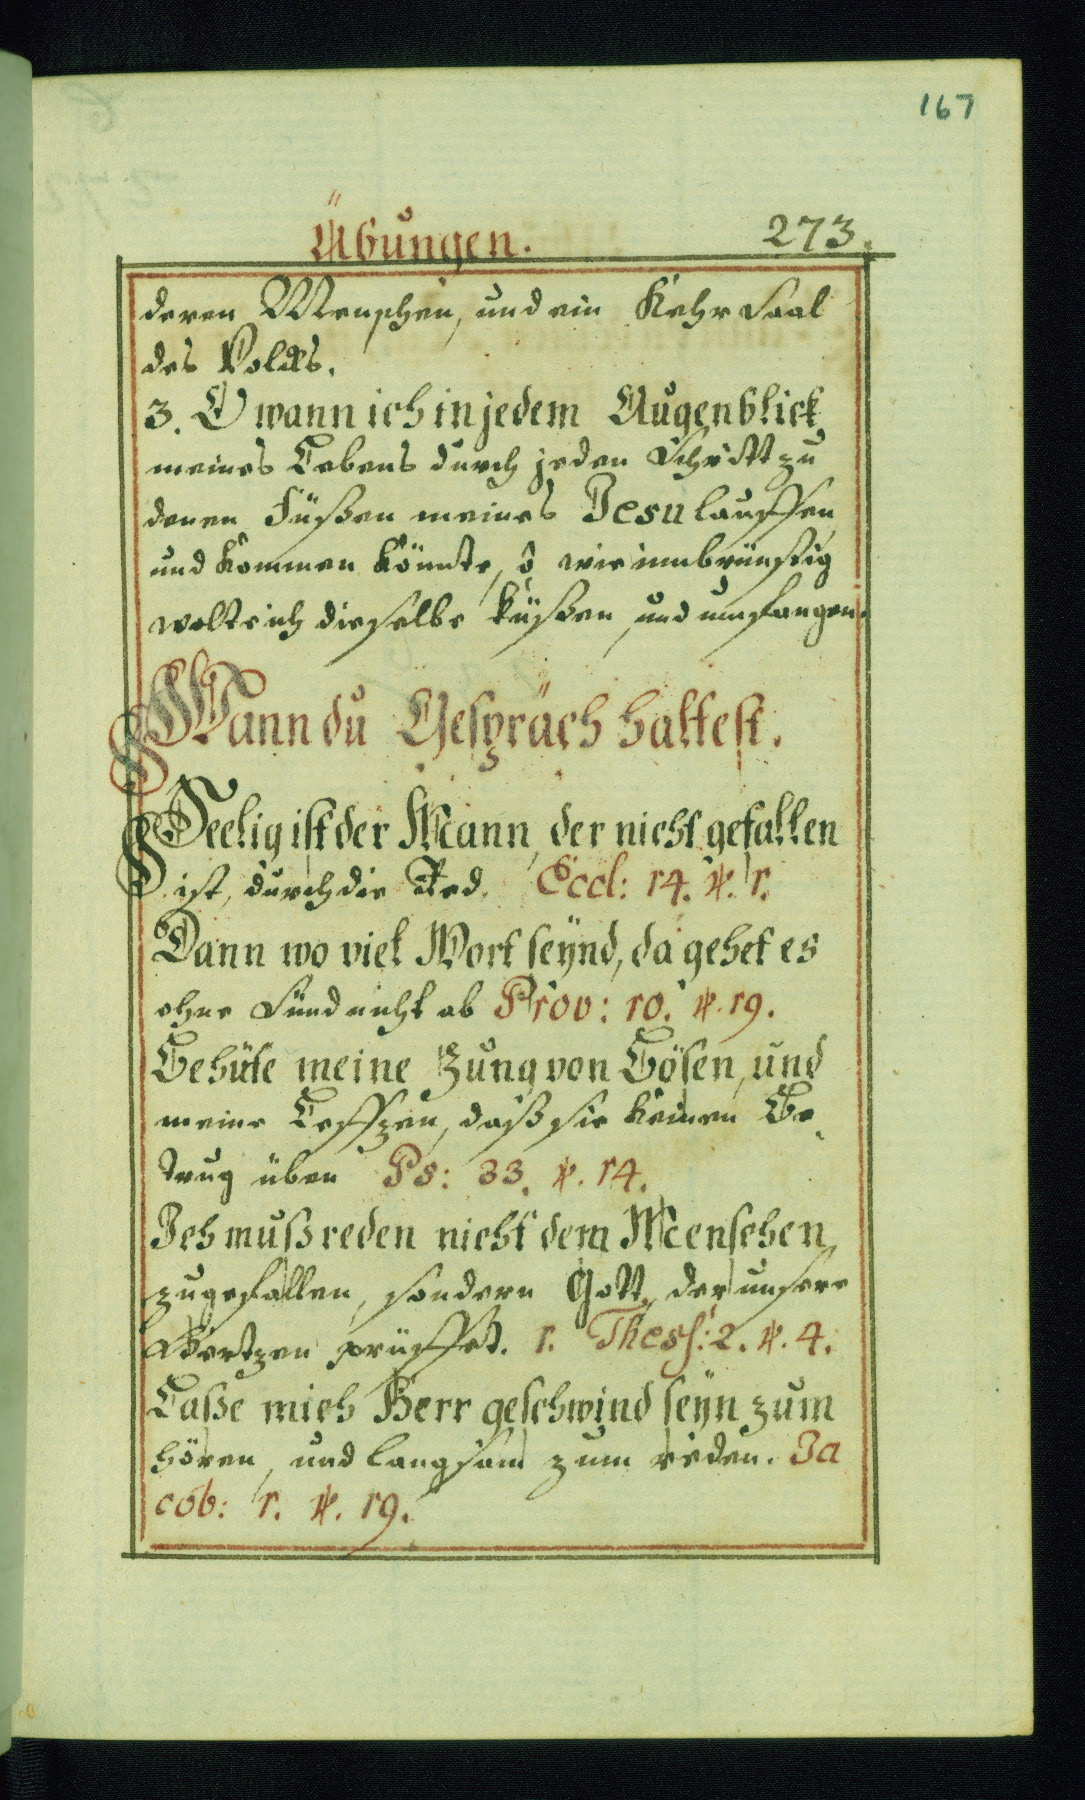 167
Übungen. 273.
deren Menschen, und ein Kehrsaal
des Volks.
3. O wann ich in jedem Augenblick
meines Lebens durch jeden Schritt zu
denen Füßen meines Jesu lauffen
und kommen könnte, ô wie innbrünstig
wolte ich dieselbe küßen, und umfangen.
Wann du Gespräch haltest.
Seelig ist der Mann, der nicht gefallen
ist, durch die Red. Eccl: 14. ℣. 1.
Dann wo viel Wort seÿnd, da gehet es
ohne Sünd nicht ab Prov: 10. ℣. 19.
Behüte meine Zung von Bösen, und
meine Leffzen, daß sie keinen Be-
trug üben Ps: 33. ℣. 14.
Ich muß reden nicht dem Menschen
zugefallen, sondern Gott, der unsere
Hertzen prüffet. 1. Thess: 2. ℣. 4.
Laße mich Herr geschwind seÿn zum
hören, und langsam zum reden. Ja
cob: 1. ℣. 19.